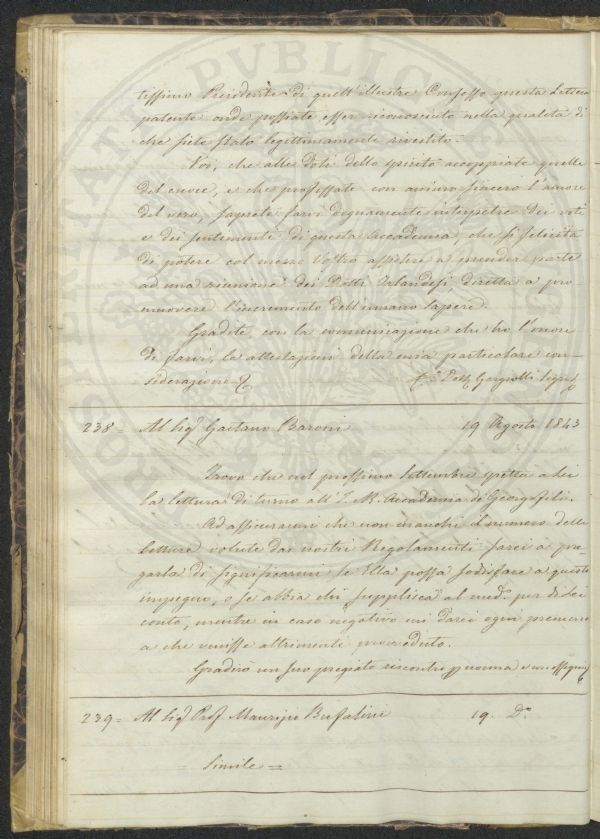 tissimo Presidente di quell'illustre Consesso questa Lettera
patente onde possiate esser riconosciuto nella qualità di
che siete stato legittimamente rivestito.
Voi, che alle doti dello spirito accoppiate quelle
del cuore, e che professate con animo sincero l'amore
del vero, saprete farvi degnamente interpetre dei voti
e dei sentimenti di questa Accademia, che si felicita
di potere col mezzo Vostro assistere a prender parte
ad una riunione dei Dotti Irlandesi, diretta a pro-
muovere l'incremento dell'umano sapere.
Gradite con la comunicazione che ho l'onore
di farvi, le attestazioni della mia particolare con-
siderazione
Dott. Gargiolli Segr.
238= Al Sig. Gaetano Baroni 19 Agosto 1843
Trovo che nel prossimo Settembre spetta a Lei
la lettura di turno all'I. R. Accademia dei Georgofili.
Ad assicurarmi che non manchi il numero delle
letture volute dai nostri Regolamenti sarei a pre
garla di significarmi se Ella possa sodisfare a questo
impegno, o se abbia chi supplisca al med.o per di Lei
conto, mentre in caso negativo mi darei ogni premura
a che venisse altrimenti provveduto.
Gradirò un suo pregiato riscontro p norma e
239= Al Sig. Prof. Maurizio Bufalini 19. Do.
Simile =
PVBLICAE
PROSPERITATI